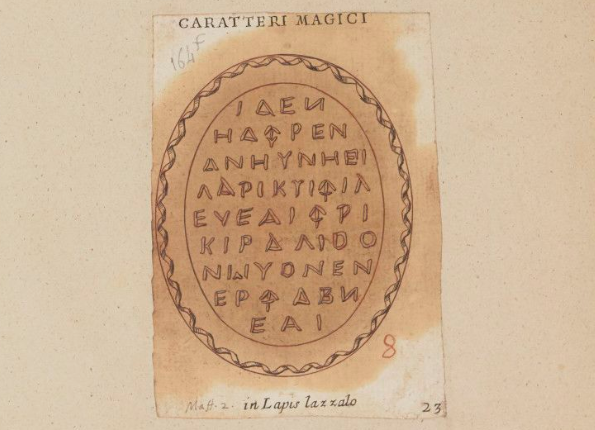 CARATTERI MAGICI
164f
ΙΔΕИ
ΗΔΦΡΕΝ
ΔΝΗΥΝΗΕΙ
ΛΔΡΙΚΤΙΦΙλ
ΕΥΕΔΙΦΡΙ
ΚΙΡΔΛΙΟΟ
ΝΙΩΥΟΝΕΝ
ΕΡΦΔΒИ
ΕΑΙ
8
Maff. 2. in Lapis lazzalo
23